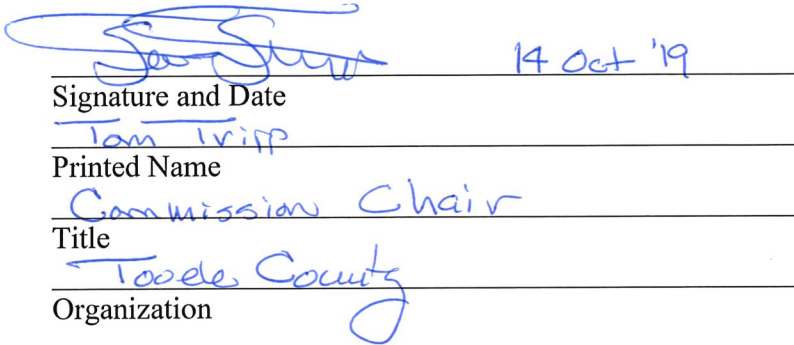 14 Oct '19
Signature and Date
Tom Tripp
Printed Name
Commission Chair
Title
Tooele County
Organization